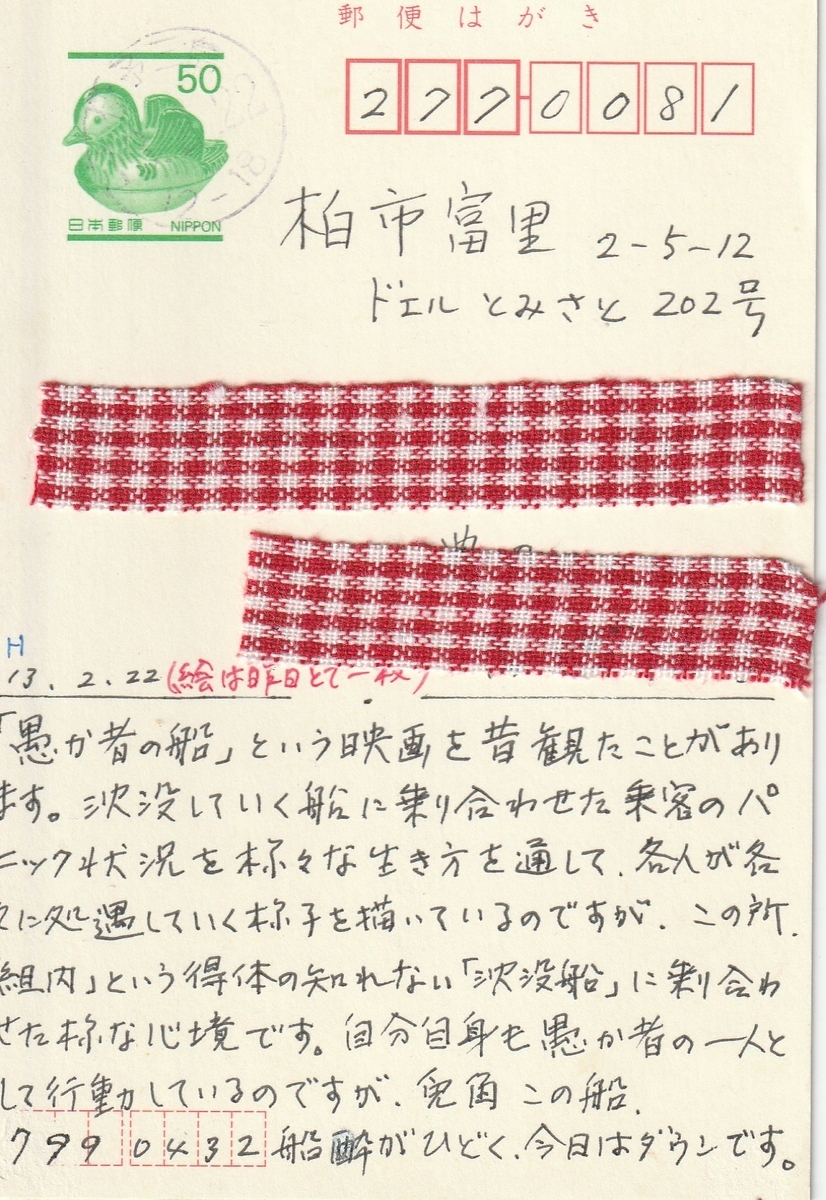 郵便はがき
50
日本郵便 NIPPON
277-0081
柏市富里 2-5-12
ドエルとみさと 202号
H
13.2.22(絵は昨日とて一枚)
「愚か者の船」という映画を昔観たことがあり
ます。沈没していく船に乗り合わせた乗客のパ
ニック状況を様々な生き方を通して、各人が各
々に処遇していく様子を描いているのですが、この所、
組内」という得体の知れない「沈没船」に乗り合わ
せた様な心境です。自分自身も愚か者の一人と
して行動しているのですが、兎角この船、
船酔がひどく、今日はダウンです。
799 0432